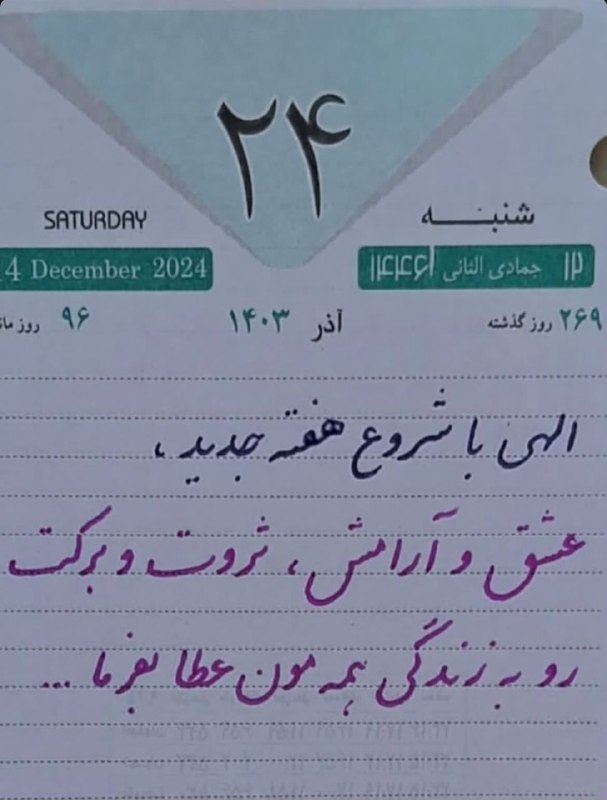 ۲۴
SATURDAY شنبه
4 December 2024 ۱۲ جمادی الثانی ۱۴۴۶
۹۶ روز آذر ۱۴۰۳ ۲۶۹ روز گذشته
الهی با شروع هفته جدید،
عشق و آرامش، ثروت و برکت
رو به زندگی همه مون عطا بفرما ...